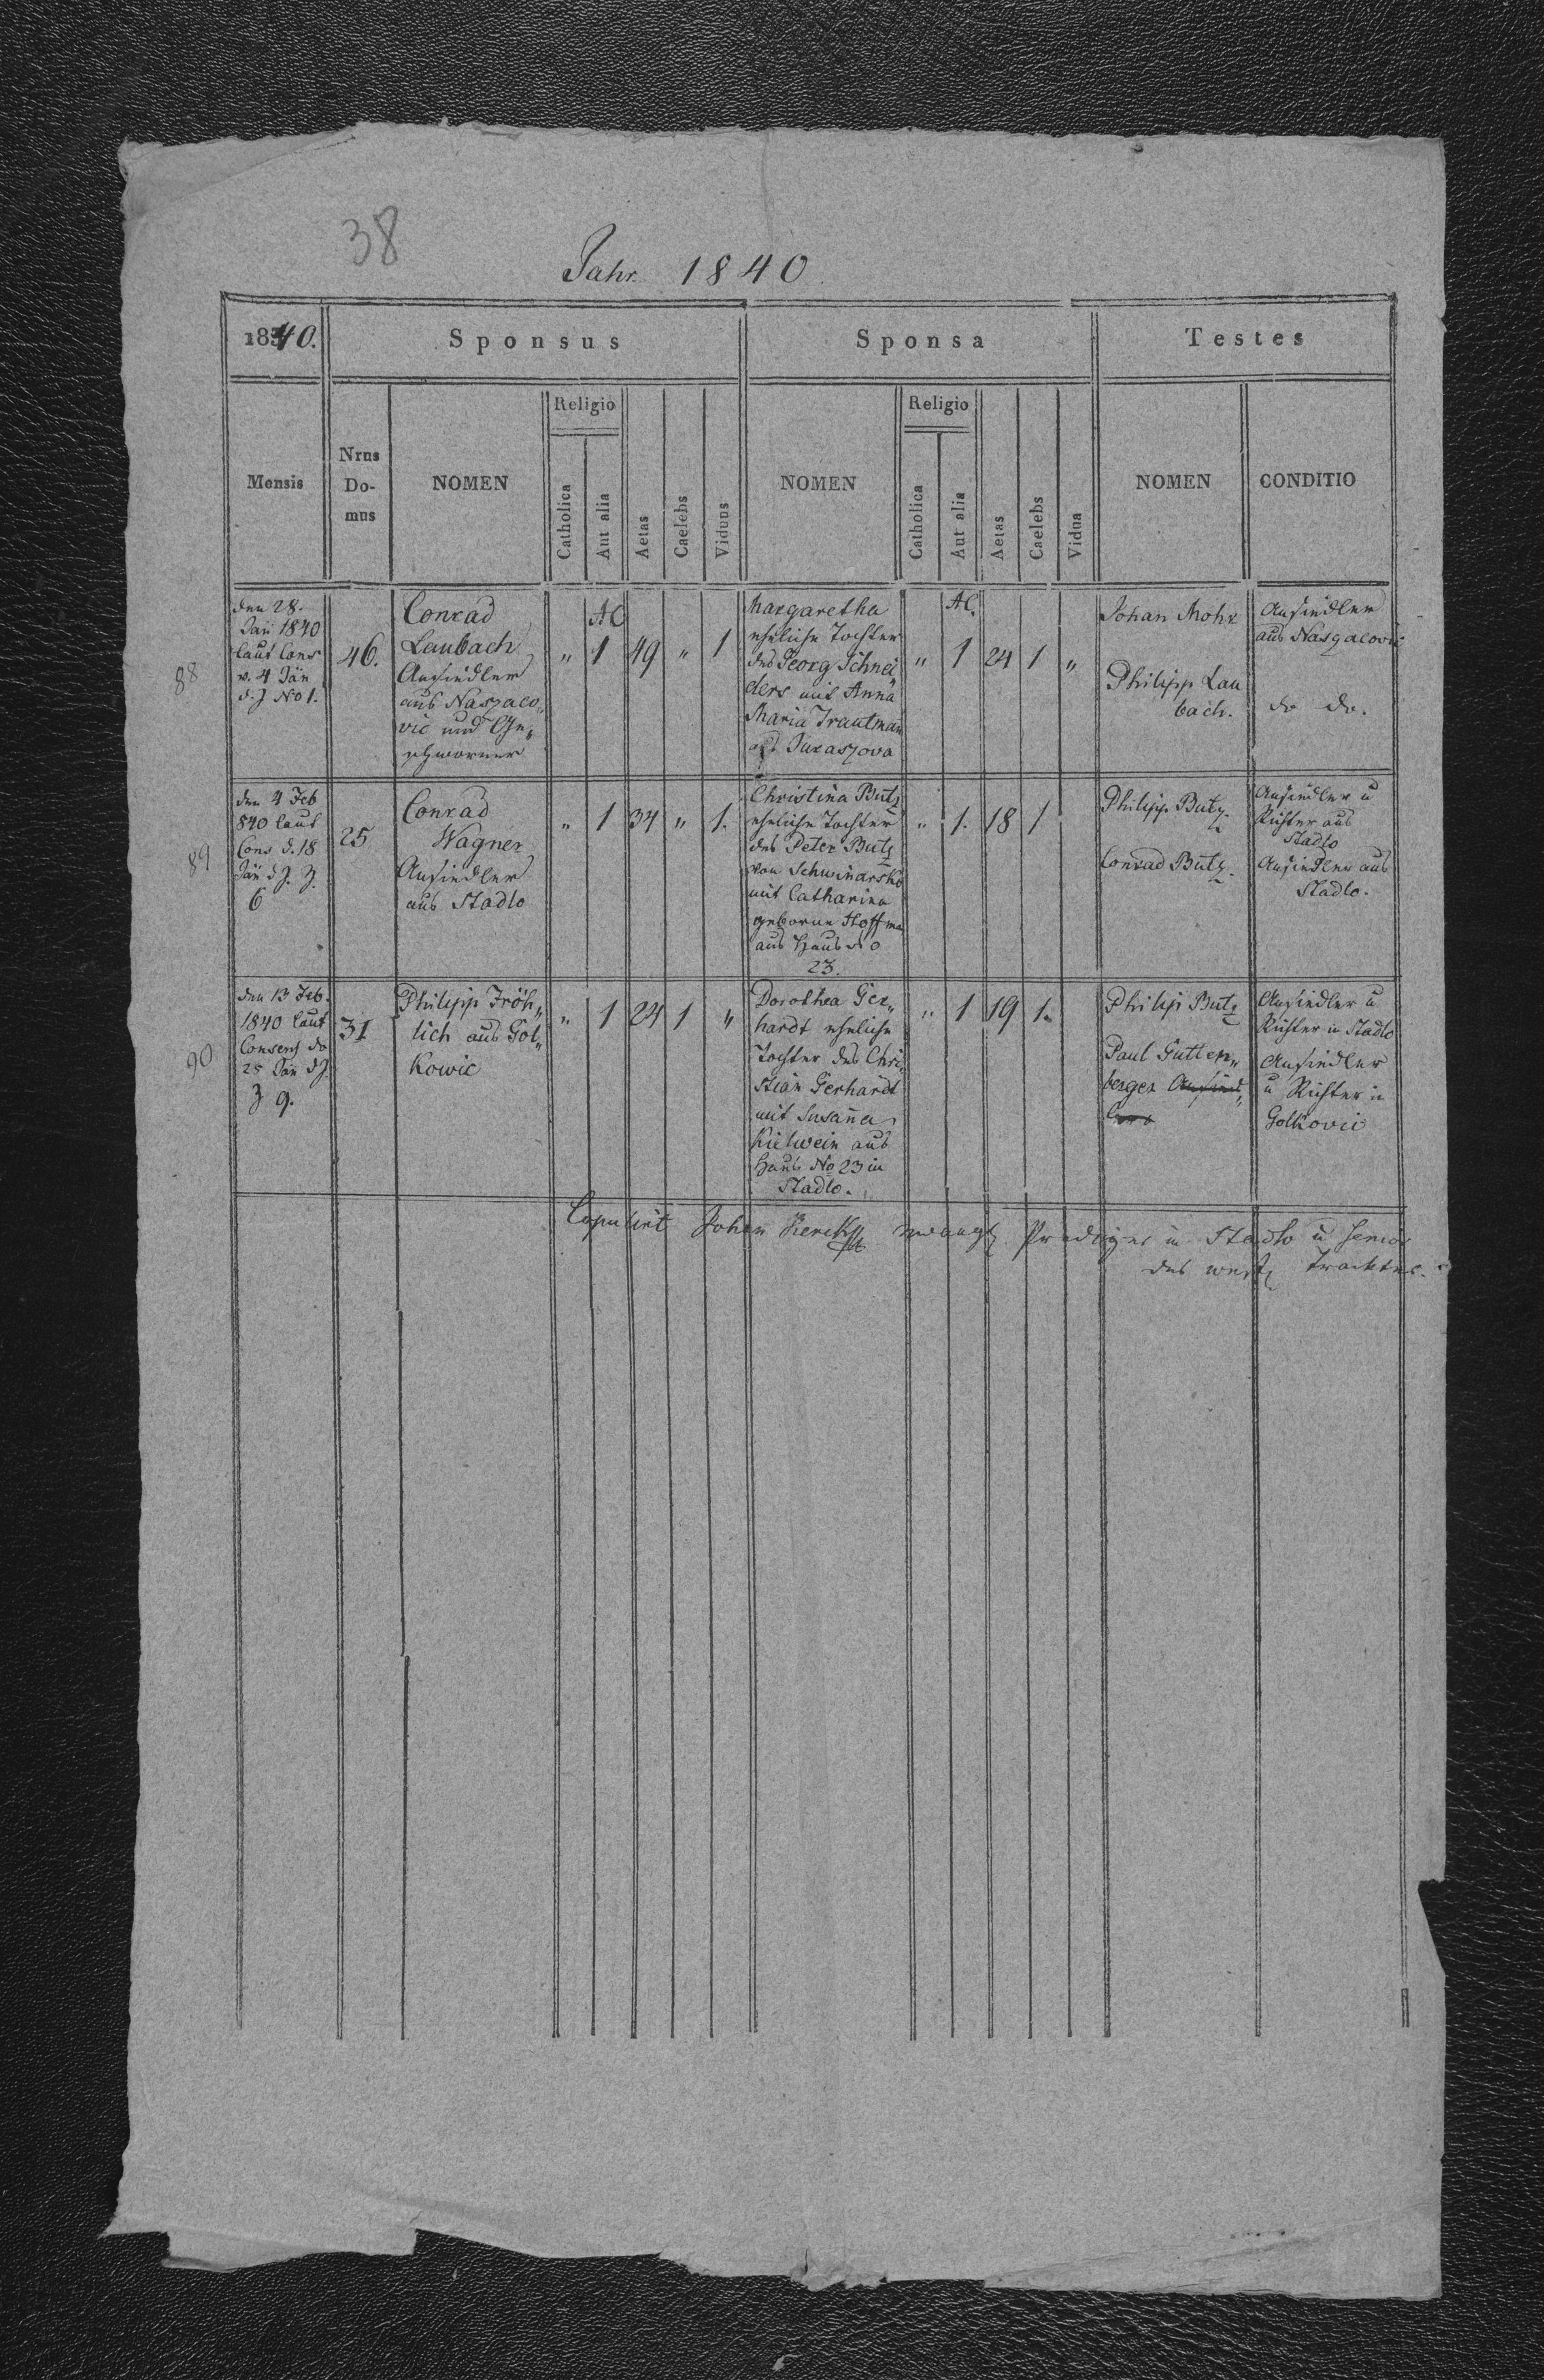 38
Jahr 1840
1840.
Sponsus
Sponsa
Testes
Mensis
Nrus
Do-
mus
NOMEN
Religio
Catholica
Aut alia
Aetas
Caelebs
Viduus
NOMEN
Religio
Catholica
Aut alia
Aetas
Caelebs
Vidua
NOMEN
CONDITIO
88
den 28.
Jän 1840
laut Cons
v. 4 Jän
d. J No 1.
46.
Conrad
Laubach
Ansiedler
aus Naszaco„
vic und Ge„
schworner
"
AC
1
49
"
1
Margaretha
eheliche Tochter
des Georg Schnei„
ders mit Anna
Maria Trautman
aus Juraszova
"
AC.
1
24
1
"
Johan Mohr
Philipp Lau
bach.
Ansiedler
aus Naszacovic
do do.
89
den 4 Feb
840 laut
Cons d. 18
Jän d J. Z.
6
25
Conrad
Wagner
Ansiedler
aus Stadlo
"
1
34
"
1.
Christina Butz
eheliche Tochter
des Peter Butz
von Schwinarsko
mit Catharina
geborne Hoffma
aus Haus No
23.
"
1.
18
1
Philipp Butz.
Conrad Butz.
Ansiedler u
Richter aus
Stadlo
Ansiedler aus
Stadlo.
90
den 13 Feb.
1840 laut
Consens do
25 Jän d J.
Z 9.
31
Philipp Fröh„
lich aus Gol„
kowic
"
1
24
1
"
Dorothea Ger„
hardt eheliche
Tochter des Chri„
stian Gerhardt
mit Susaña
Kielwein aus
Haus No 23 in
Stadlo.
"
1
19
1.
Philip Butz
Paul Gutten„
berger Ansied„
Ansiedler u
Richter in Stadlo
Ansiedler
u Richter in
Golkovic
Copulirt Johan Prediger in Stadlo u Senior
des westg Tracktes.